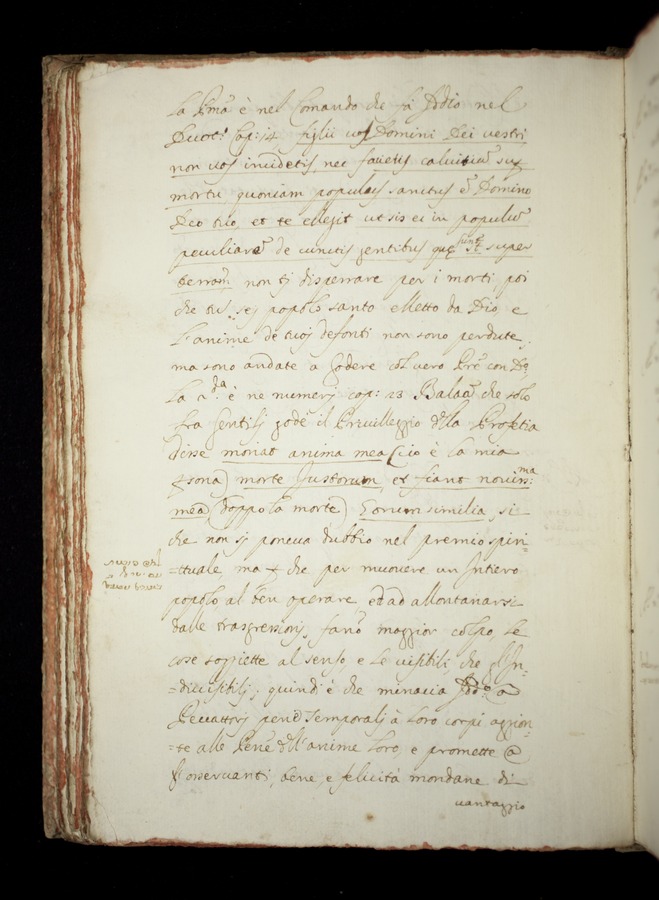 la p̃ma è nel Comando che fà Iddio nel
Deuot.º Cap: 14, figlij uos Domini Dei vestri
non vos incidetis, nec facietis calvitiũ sup̱
mortu, quoniam populus sanctus ẽ Domino
Deo tuo, et te elegit ut sis ei in populũ
peculiarẽ de cunctis gentibus quę sunt super
terram non ti disperrare per i morti poi
che tu sej popolo santo elletto da Dio, e
l'anime de tuoj defonti non sono perdute,
ma sono andate a godere col vero Prẽ con Dº
La 2.da è ne numerj cap: 23 Balaã che solo
tra Gentilj godè il Privilleggio della Profetia
disse moriat anima mea (cioè la mia
ꝑsona) morte Justorum, et fiant noviss:ma
mea (doppo la morte) Eorum similia, si
che non si poneva dubbio nel premio spiri=
=ttuale, ma ꝑ che per muovere un Intiero
popolo al ben operare, ed ad allontanarsi
dalle trasgressionj, fanõ maggior colpo le
cose soggiette al senso, e le visibili, che gl'In=
=diuisibilj; quindi è che minacia Idd.º a
Peccattorj penẽ Temporalj à loro corpi aggion=
=te alle Penẽ dell'anime loro, e promette a
gl'osservanti, bene, e felicità mondane di
vantaggio